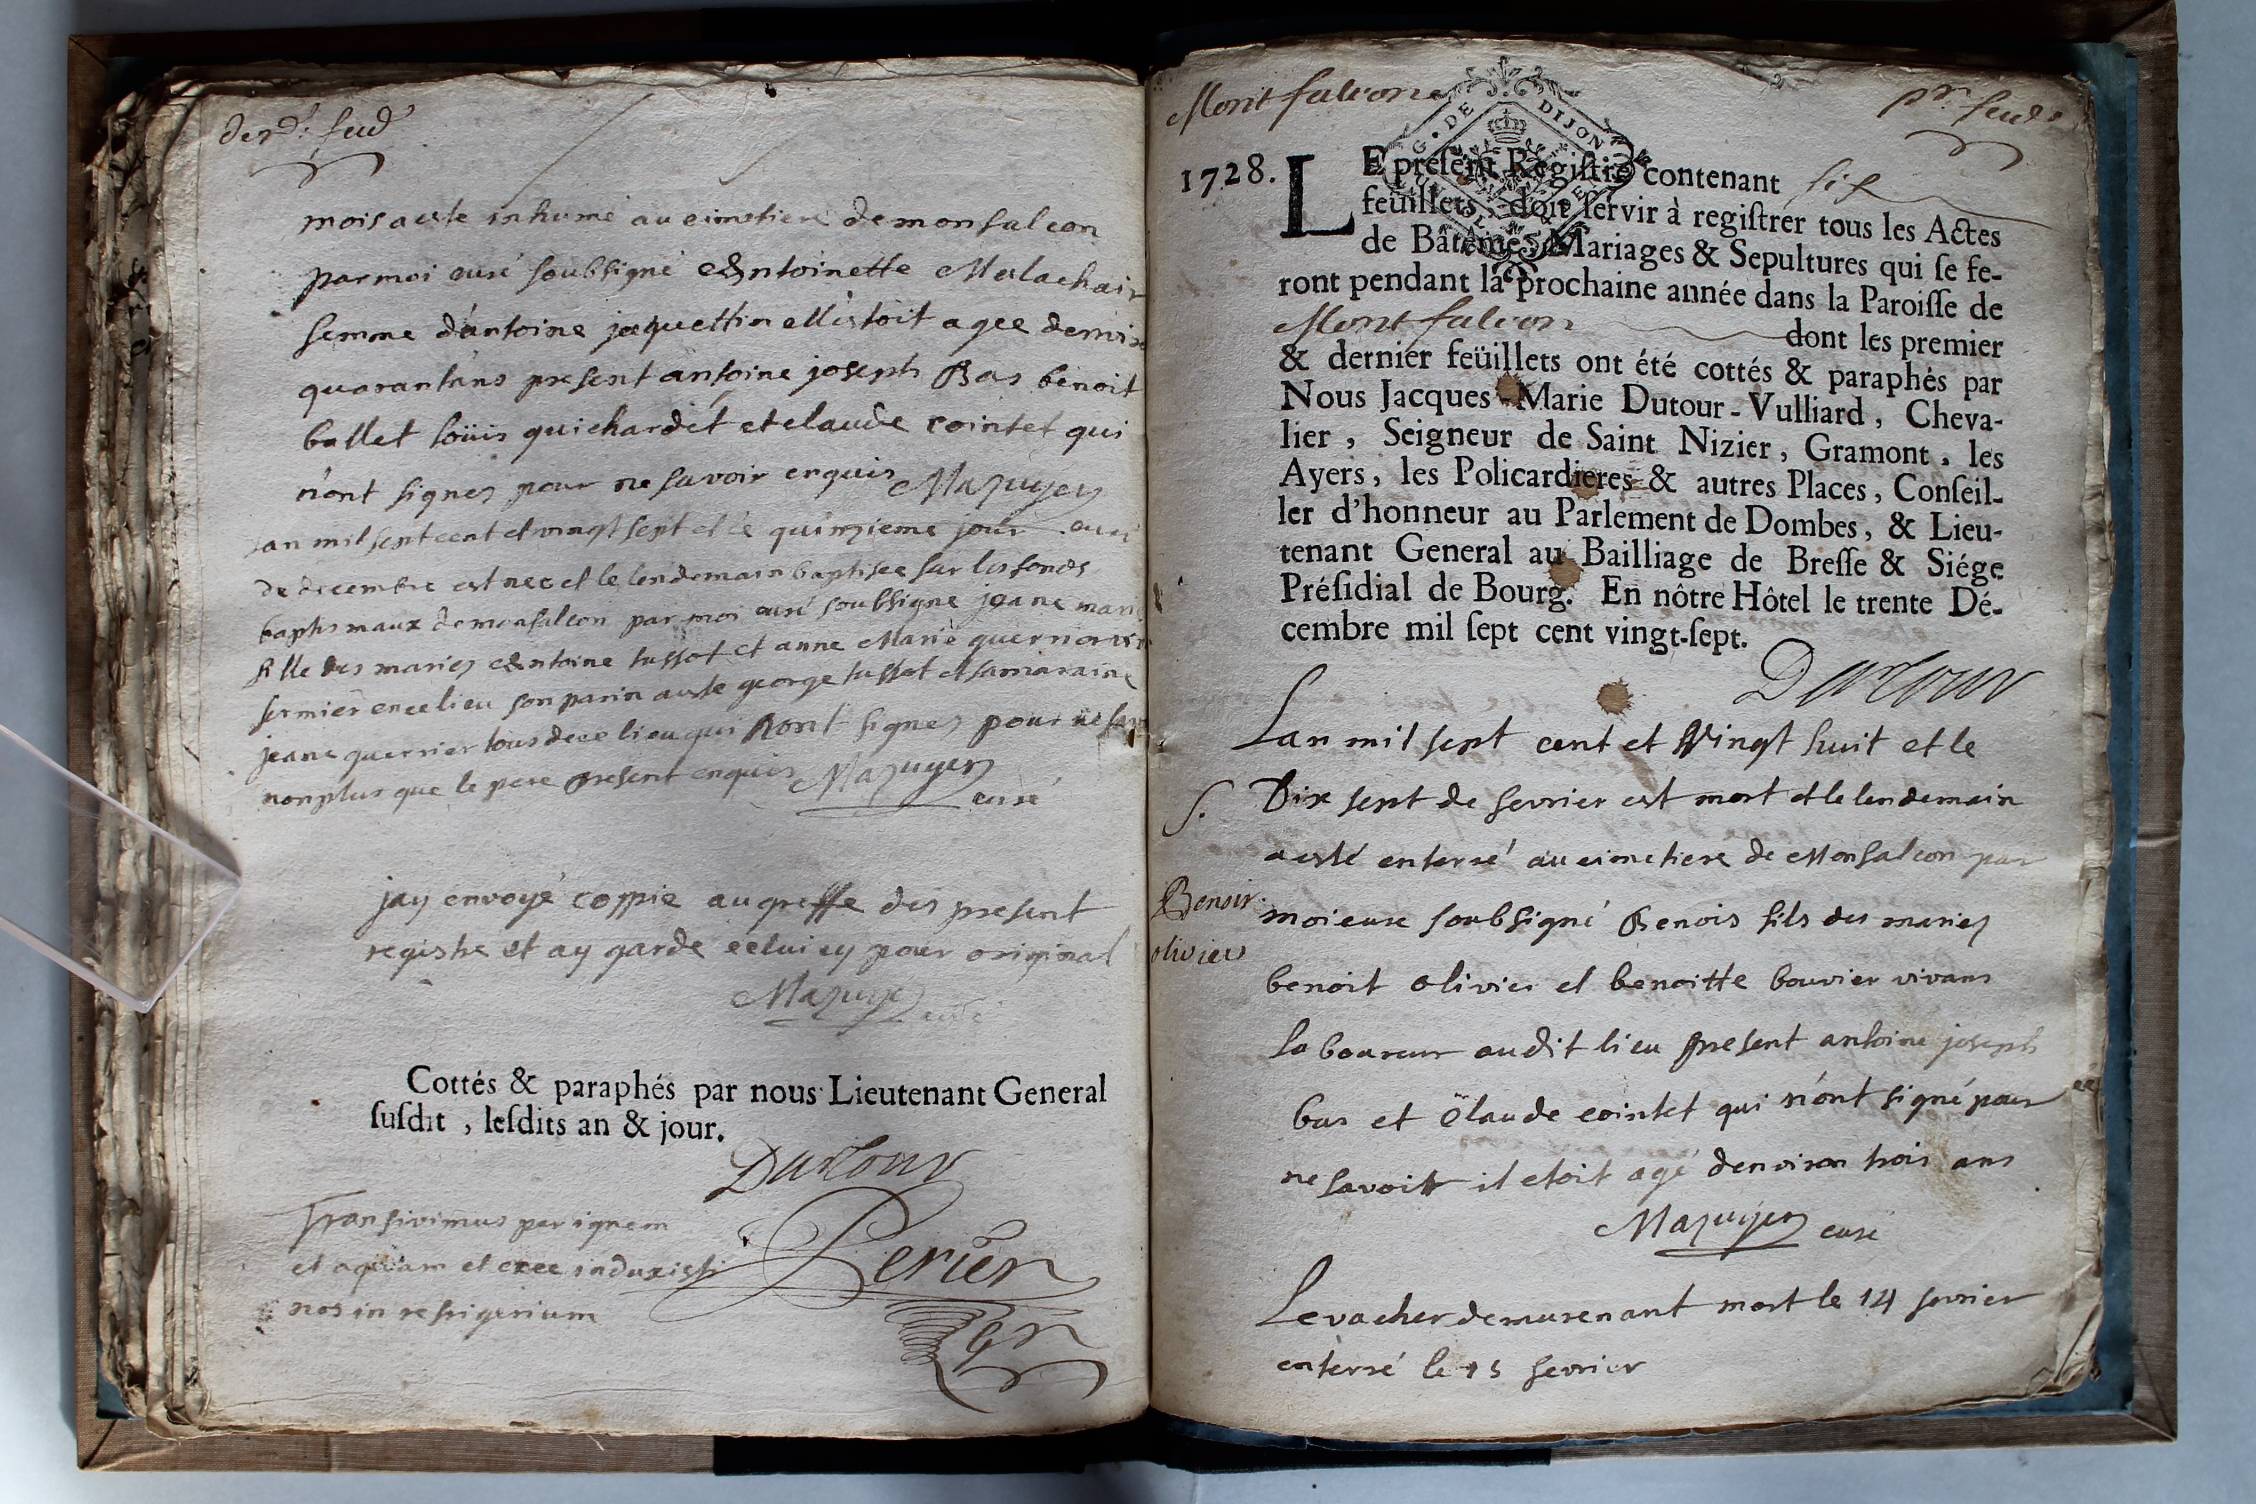 mois a este inhumé au cimetiere de monfalcon
par moi curé soubsigné Antoinette Malachair
femme d'antoine jaquettin elle estoit agee denviron
quarant'ans present antoine joseph Bas benoit
ballet loüis guichardet et claude cointet qui
n'ont signez pour ne savoir enquis Mazuyer
lan mil sept cent et vingt sept et le quinzieme jour
de decembre est nee et le lendemain baptisee sur les fonds
baptismaux de monfalcon par moi curé soubsigne jeane marie
fille des mariez Antoine tussot et anne Marie guerrier
fermier en ce lieu son parin a este george tussot et sa maraine
jeane guerrier tous de ce lieu qui n'ont signez pour ne sav
non plus que le pere present enquis Mazuyer
curé
jay envoyé coppie au greffe des present
registre et ay garde celuicy pour original
Mazuyer
curé
Cottés & paraphés par nous Lieutenant General
susdit, lesdits an & jour.
Dutour
Transivimus per ignem
et aquam et eduxisti
nos in refrigerium
Perier
Montfalcon
G. DE DIJON
pr. feuil
1728. LE present Registre contenant six
feüillets, doit servir à registrer tous les Actes
de Bâtême, Mariages & Sepultures qui se fe-
ront pendant la prochaine année dans la Paroisse de
Montfalcon dont les premier
& dernier feüillets ont été cottés & paraphés par
Nous Jacques-Marie Dutour-Vulliard, Cheva-
lier, Seigneur de Saint Nizier, Gramont, les
Ayers, les Policardieres & autres Places, Conseil-
ler d'honneur au Parlement de Dombes, & Lieu-
tenant General au Bailliage de Bresse & Siége
Présidial de Bourg. En nôtre Hôtel le trente Dé-
cembre mil sept cent vingt-sept.
Dutour
Lan mil sept cent et Vingt huit et le
S. Dix sept de fevrier est mort et le lendemain
a esté enterré au cimetiere de Monfalcon par
Benoir
olivier
moi curé soubsigné Benois fils des mariez
benoit olivier et benoitte bouvier vivans
laboureur audit lieu present antoine joseph
bas et Claude cointet qui n'ont signé pour
ne savoir il etoit agé denviron trois ans
Mazuyer curé
Le vacher de murenant mort le 14 fevrier
enterré le 15 fevrier